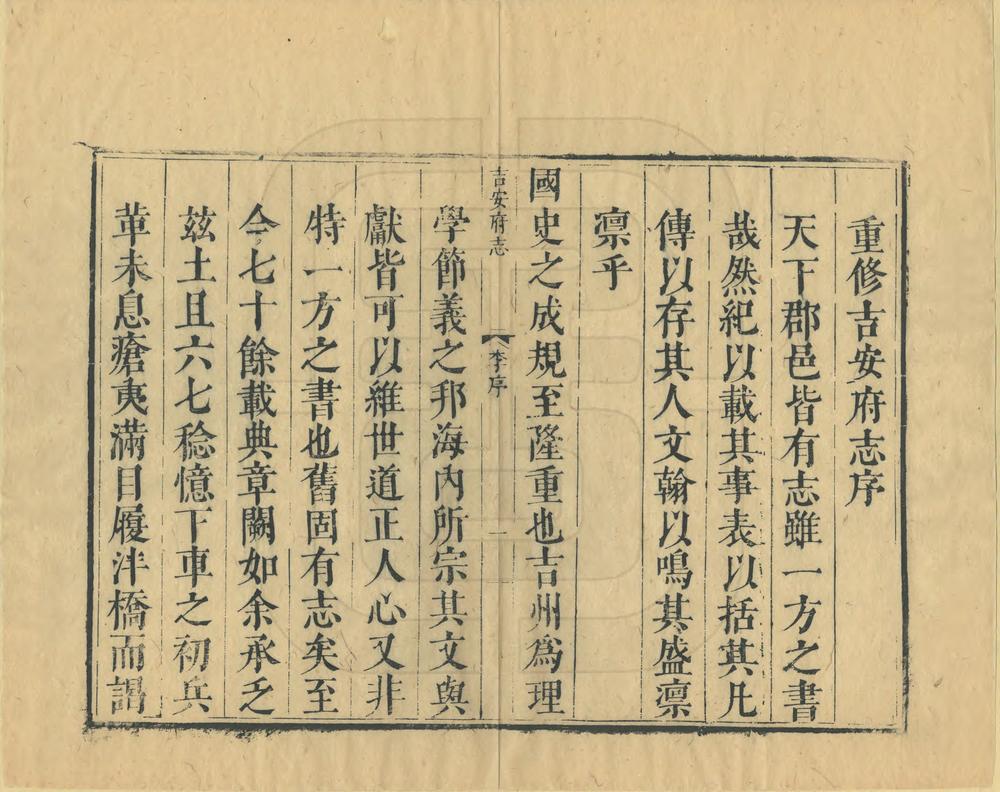 重修吉安府志序
天下郡邑皆有志雖一方之書
哉然紀以載其事表以括其凡
傳以存其人文翰以鳴其盛凛
凛乎
國史之成規至隆重也吉州為理
吉安府志 李序 一
學節義之邦海內所宗其文與
獻皆可以維世道正人心又非
特一方之書也舊固有志矣至
今七十餘載典章闕如余承乏
茲土且六七稔憶下車之初兵
革未息瘡夷滿目履泮橋而謁